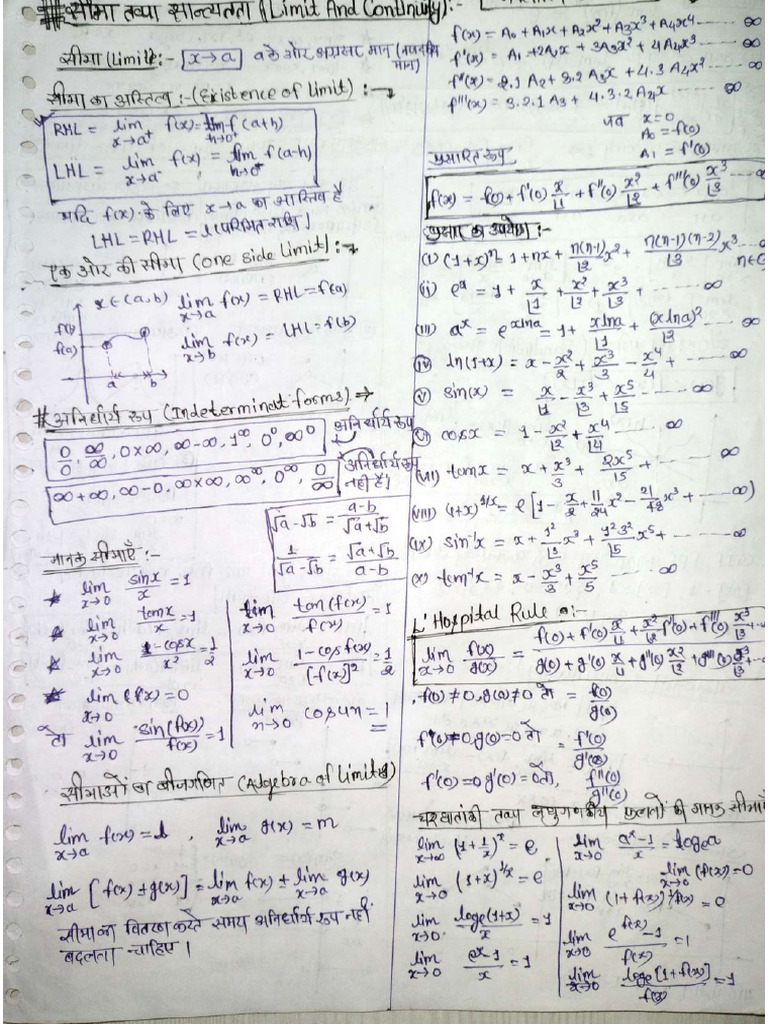 # सीमा तथा सान्त्यतता (Limit And Continuity):-
सीमा (Limit):- x→a a के ओर अग्रसर मान
सीमा का अस्तित्व :- (Existence of Limit) :→
RHL = lim x→a⁺ f(x) = lim h→0⁺ f(a+h)
LHL = lim x→a⁻ f(x) = lim h→0⁺ f(a-h)
यदि f(x) के लिए x→a का अस्तित्व है
LHL = RHL = l (परिमित राशि)
एक ओर की सीमा (One Side Limit) :→
x∈(a,b) lim x→a f(x) = RHL = f(a)
lim x→b f(x) = LHL = f(b)
f(b)
f(a)
a b
# अनिर्धार्य रूप (Indeterminat forms) ⇒
0/0, ∞/∞, 0×∞, ∞-∞, 1^∞, 0⁰, ∞⁰ अनिर्धार्य रूप
∞+∞, ∞-0, ∞×∞, ∞^∞, 0^∞, 0/∞ अनिर्धार्य रूप नही है।
√a-√b = (a-b)/(√a+√b)
1/(√a-√b) = (√a+√b)/(a-b)
मानक सीमाएँ :-
lim x→0 sinx/x = 1
lim x→0 tanx/x = 1
lim x→0 (1-cosx)/x² = 1/2
lim x→0 (f(x) = 0
तो lim x→0 sin(f(x))/f(x) = 1
lim x→0 tan(f(x))/f(x) = 1
lim x→0 (1-cos f(x))/[f(x)]² = 1/2
lim n→0 cosun = 1
सीमाओं का बीजगणित (Algebra of Limits)
lim x→a f(x) = l , lim x→a g(x) = m
lim x→a [f(x) ± g(x)] = lim x→a f(x) ± lim x→a g(x)
सीमा का वितरण करते समय अनिर्धार्य रूप नहीं
बदलना चाहिए।
f(x) = A₀ + A₁x + A₂x² + A₃x³ + A₄x⁴ ------ ∞
f'(x) = A₁ + 2A₂x + 3A₃x² + 4A₄x³ ------ ∞
f''(x) = 2.1 A₂ + 3.2 A₃x + 4.3 A₄x² ------ ∞
f'''(x) = 3.2.1 A₃ + 4.3.2 A₄x ------ ∞
जब x=0
A₀ = f(0)
A₁ = f'(0)
प्रसारित रूप
f(x) = f(0) + f'(0) x/⌊1 + f''(0) x²/⌊2 + f'''(0) x³/⌊3 ---- ∞
प्रसार का उपयोग :-
(i) (1+x)ⁿ = 1 + nx + n(n-1)/⌊2 x² + n(n-1)(n-2)/⌊3 x³ ---- ∞
(ii) eᵃ = 1 + x/⌊1 + x²/⌊2 + x³/⌊3 + ------ ∞
(iii) aˣ = e^(xlna) = 1 + xlna/⌊1 + (xlna)²/⌊2 ------ ∞
(iv) ln(1+x) = x - x²/2 + x³/3 - x⁴/4 + ------ ∞
(v) sin(x) = x/⌊1 - x³/⌊3 + x⁵/⌊5 ------ ∞
(vi) cosx = 1 - x²/⌊2 + x⁴/⌊4 ------ ∞
(vii) tanx = x + x³/3 + 2x⁵/15 + ------ ∞
(viii) (1+x)^(1/x) = e[1 - x/2 + 11/24 x² - 21/48 x³ + ------ ∞)
(ix) sin⁻¹x = x + 1²/⌊3 x³ + 1²3²/⌊5 x⁵ + ------ ∞
(x) tan⁻¹x = x - x³/3 + x⁵/5 ------ ∞
L' Hospital Rule :-
lim x→0 f(x)/g(x) = (f(0) + f'(0) x/⌊1 + x²/⌊2 f''(0) + f'''(0) x³/⌊3 + --)/(g(0) + g'(0) x/⌊1 + g''(0) x²/⌊2 + g'''(0) x³/⌊3 --)
f(0) ≠ 0, g(0) ≠ 0 तो = f(0)/g(0)
f(0) = 0, g(0) = 0 तो = f'(0)/g'(0)
f'(0) = 0 g'(0) = 0 तो, f''(0)/g''(0)
चरघातांकी तथा लघुगणकीय फलनों की मानक सीमाएँ
lim x→∞ (1+1/x)ˣ = e
lim x→0 (1+x)^(1/x) = e
lim x→0 loge(1+x)/x = 1
lim x→0 (eˣ-1)/x = 1
lim x→0 (aˣ-1)/x = logea
lim x→0 (f(x) = 0
lim x→0 (1+f(x))^(1/f(x)) = e
lim x→0 (e^(f(x))-1)/f(x) = 1
lim x→0 loge[1+f(x)]/f(x) = 1